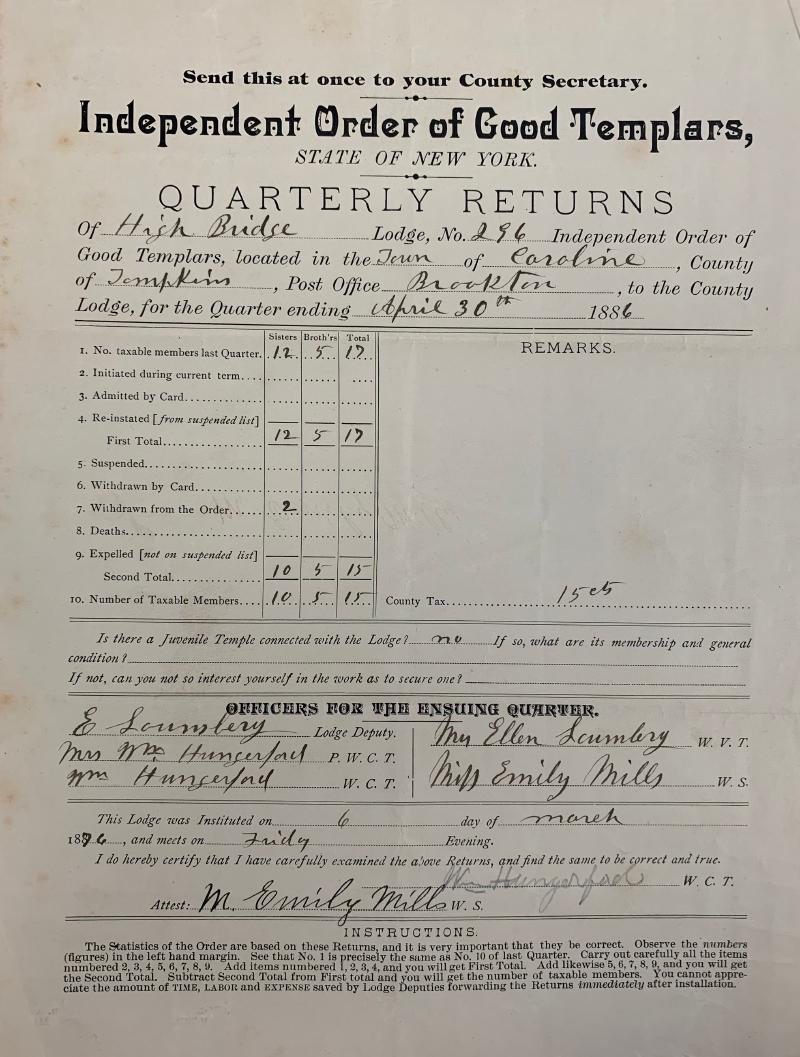 Send this at once to your County Secretary.
Independent Order of Good Templars,
STATE OF NEW YORK.
QUARTERLY RETURNS
Of High Bridge Lodge, No. 296 Independent Order of
Good Templars, located in the Town of Caroline, County
of Tompkins, Post Office Brookton, to the County
Lodge, for the Quarter ending April 30th 1886
Sisters Broth'rs Total
REMARKS.
1. No. taxable members last Quarter. 12 5 17
2. Initiated during current term....
3. Admitted by Card.............
4. Re-instated [from suspended list]
First Total................. 12 5 17
5. Suspended....................
6. Withdrawn by Card...........
7. Withdrawn from the Order...... 2
8. Deaths.......................
9. Expelled [not on suspended list]
Second Total............... 10 5 15
10. Number of Taxable Members.... 10 5 15
County Tax 15cts
Is there a Juvenile Temple connected with the Lodge? no If so, what are its membership and general
condition?
If not, can you not so interest yourself in the work as to secure one?
OFFICERS FOR THE ENSUING QUARTER.
E Lounsbery Lodge Deputy.
Mrs Wm Hungerford P. W. C. T.
Wm Hungerford W. C. T.
Ellen Lounsbery W. V. T.
Miss Emily Mills W. S.
This Lodge was Instituted on 6 day of march
, and meets on Friday Evening.
I do hereby certify that I have carefully examined the above Returns, and find the same to be correct and true.
Wm Hungerford W. C. T.
Attest: M. Emily Mills W. S.
INSTRUCTIONS.
The Statistics of the Order are based on these Returns, and it is very important that they be correct. Observe the numbers
(figures) in the left hand margin. See that No. 1 is precisely the same as No. 10 of last Quarter. Carry out carefully all the items
numbered 2, 3, 4, 5, 6, 7, 8, 9. Add items numbered 1, 2, 3, 4, and you will get First Total. Add likewise 5, 6, 7, 8, 9, and you will get
the Second Total. Subtract Second Total from First total and you will get the number of taxable members. You cannot appre-
ciate the amount of TIME, LABOR and EXPENSE saved by Lodge Deputies forwarding the Returns immediately after installation.